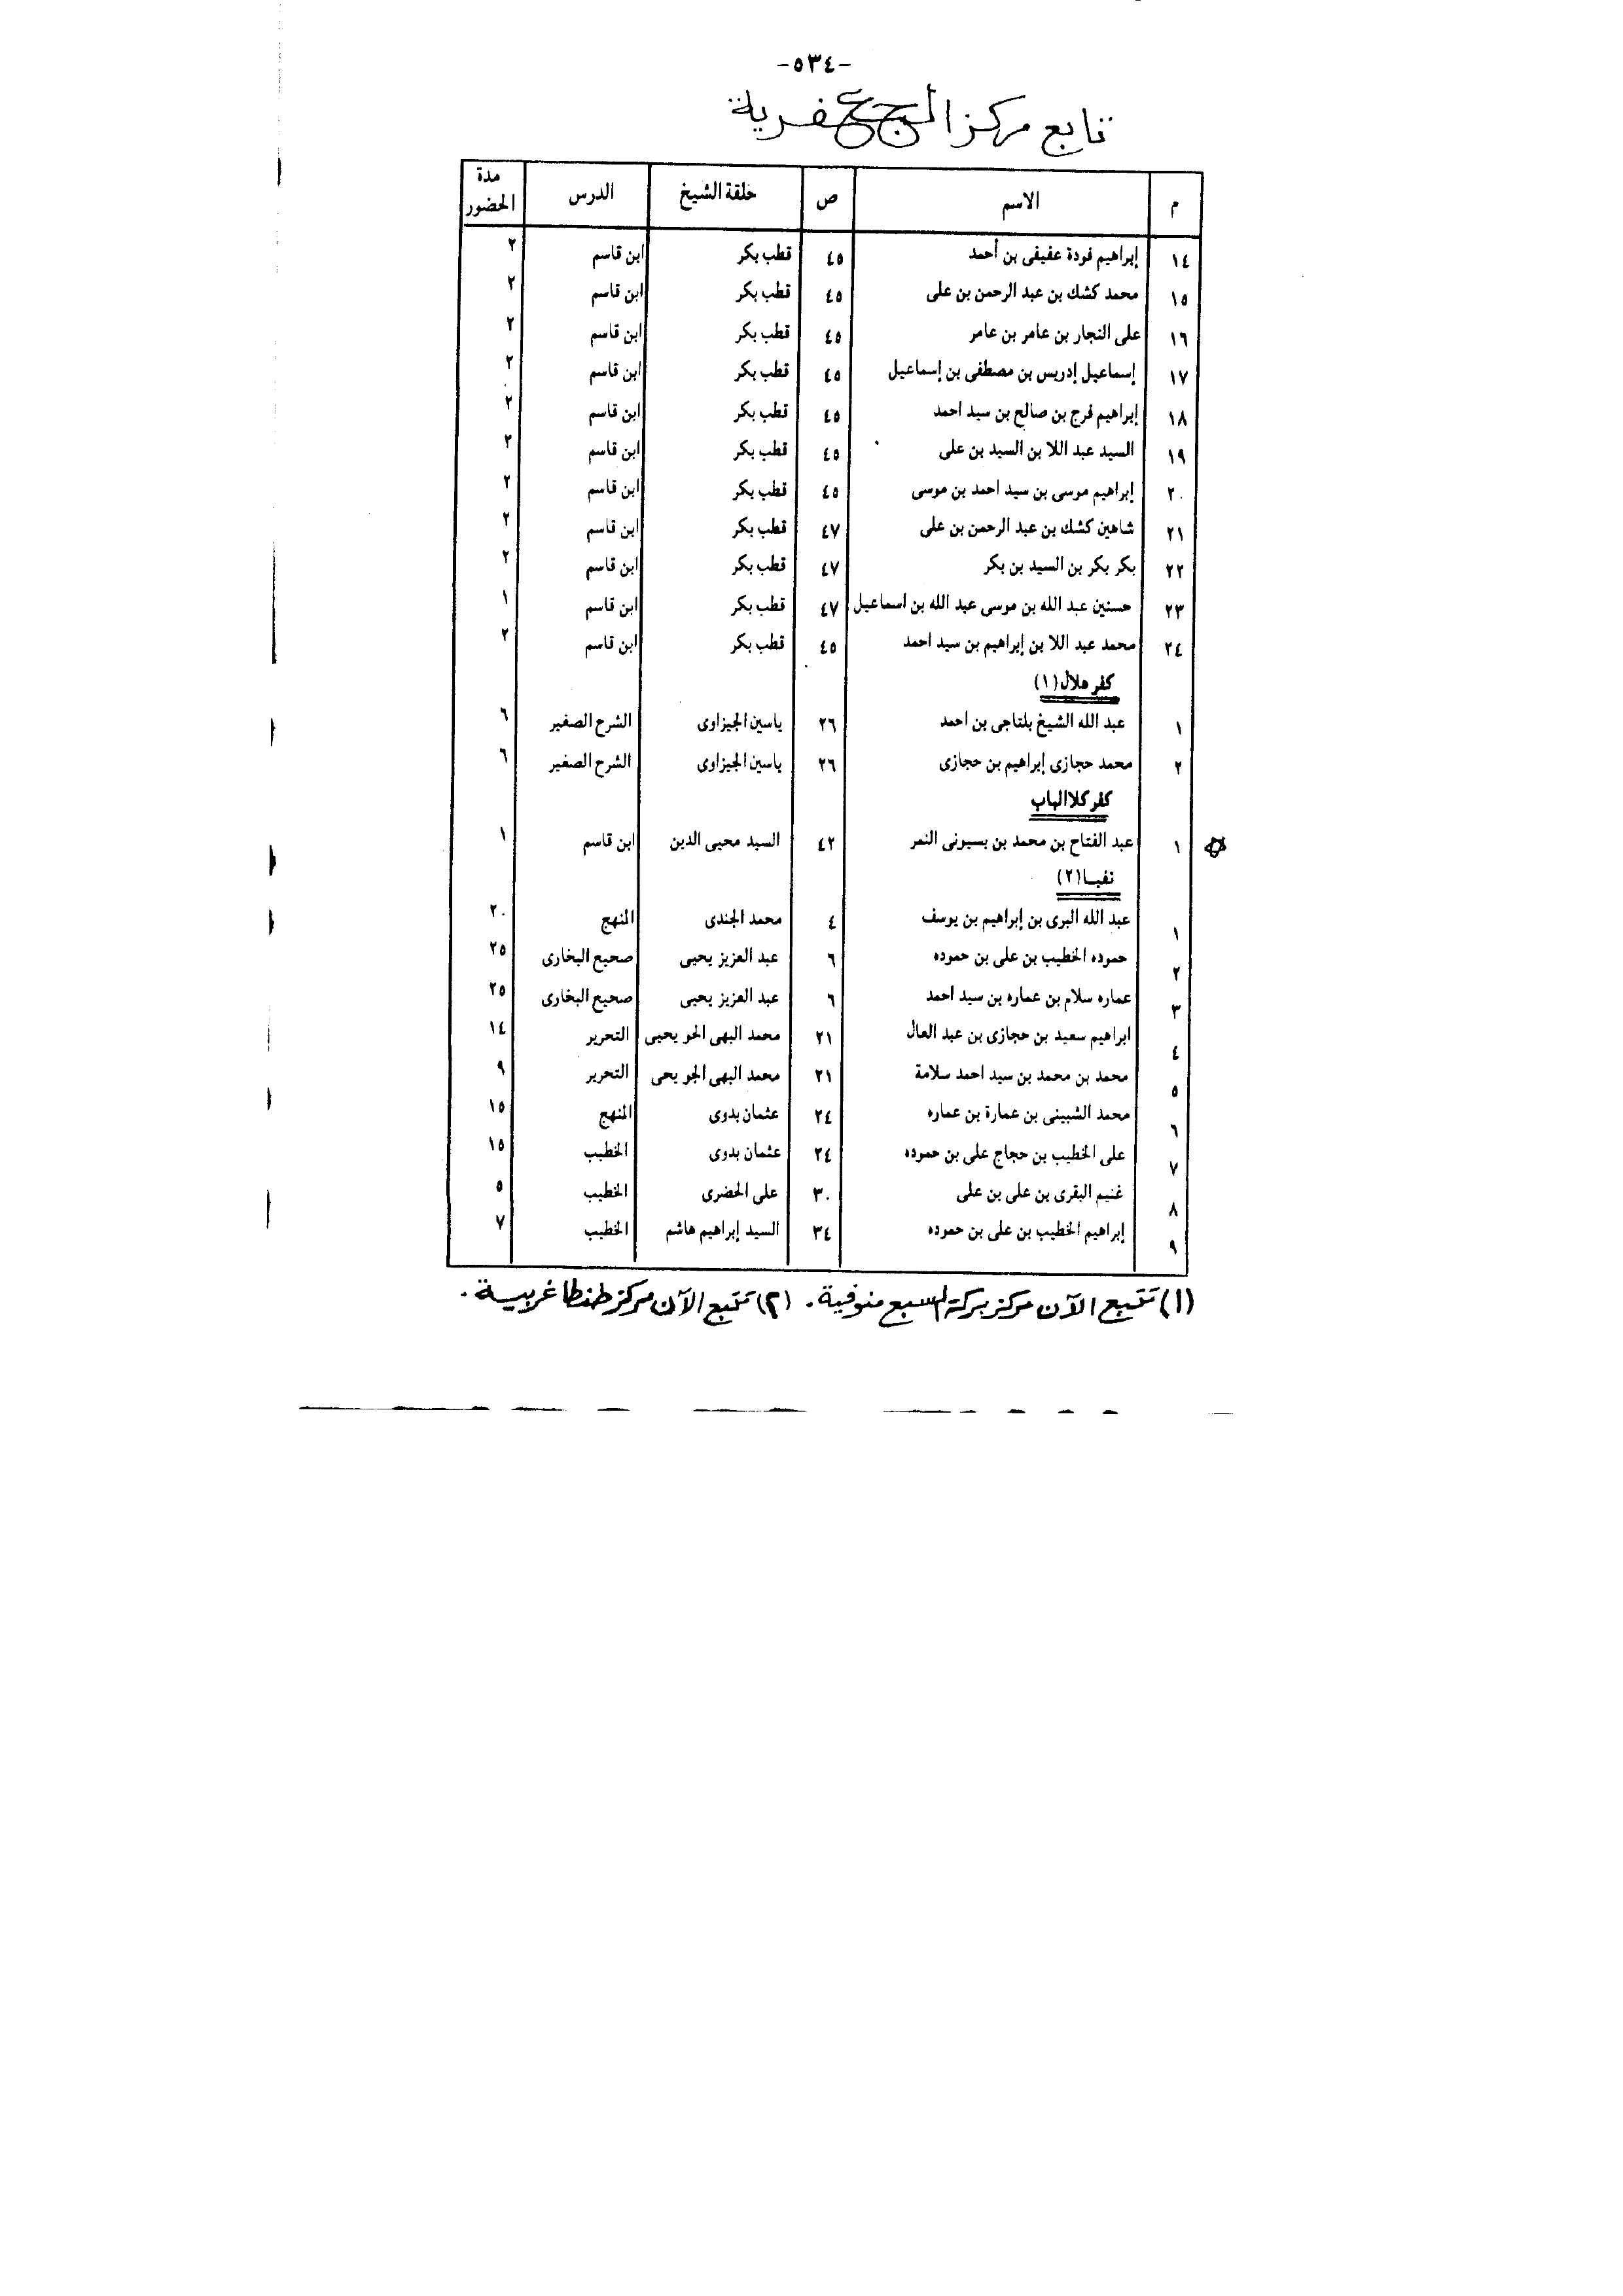 -٥٣٤-
تابع مركز الجعفرية
م الاسم ص حلقة الشيخ الدرس مدة الحضور
١٤ إبراهيم فودة عفيفى بن أحمد ٤٥ قطب بكر ابن قاسم ٢
١٥ محمد كشك بن عبد الرحمن بن على ٤٥ قطب بكر ابن قاسم ٢
١٦ على النجار بن عامر بن عامر ٤٥ قطب بكر ابن قاسم ٢
١٧ إسماعيل إدريس بن مصطفى بن إسماعيل ٤٥ قطب بكر ابن قاسم ٢
١٨ إبراهيم فرج بن صالح بن سيد احمد ٤٥ قطب بكر ابن قاسم ٢
١٩ السيد عبد اللا بن السيد بن على ٤٥ قطب بكر ابن قاسم ٢
٢٠ إبراهيم موسى بن سيد احمد بن موسى ٤٥ قطب بكر ابن قاسم ٢
٢١ شاهين كشك بن عبد الرحمن بن على ٤٧ قطب بكر ابن قاسم ٢
٢٢ بكر بكر بن السيد بن بكر ٤٧ قطب بكر ابن قاسم ٢
٢٣ حسنين عبد الله بن موسى عبد الله بن اسماعيل ٤٧ قطب بكر ابن قاسم ١
٢٤ محمد عبد اللا بن إبراهيم بن سيد احمد ٤٥ قطب بكر ابن قاسم ٢
كفر هلال (١)
١ عبد الله الشيخ بلتاجى بن احمد ٢٦ ياسين الجيزاوى الشرح الصغير ٦
٢ محمد حجازى إبراهيم بن حجازى ٢٦ ياسين الجيزاوى الشرح الصغير ٦
كفر كلا الباب
١ عبد الفتاح بن محمد بن بسيونى النمر ٤٢ السيد محيى الدين ابن قاسم ١
نفيا (٢)
١ عبد الله البرى بن إبراهيم بن يوسف ٤ محمد الجندى المنهج ٢٠
٢ حموده الخطيب بن على بن حموده ٦ عبد العزيز يحيى صحيح البخارى ٢٥
٣ عماره سلام بن عماره بن سيد احمد ٦ عبد العزيز يحيى صحيح البخارى ٢٥
٤ ابراهيم سعيد بن حجازى بن عبد العال ٢١ محمد البهى الحو يحيى التحرير ١٤
٥ محمد بن محمد بن سيد احمد سلامة ٢١ محمد البهى الجو يحى التحرير ٩
٦ محمد الشبينى بن عمارة بن عماره ٢٤ عثمان بدوى المنهج ١٥
٧ على الخطيب بن حجاج على بن حموده ٢٤ عثمان بدوى الخطيب ١٥
٨ غنيم البقرى بن على بن على ٣٠ على الحضرى الخطيب ٥
٩ إبراهيم الخطيب بن على بن حموده ٣٤ السيد إبراهيم هاشم الخطيب ٧
(١) تتبع الآن مركز بركة السبع منوفية. (٢) تتبع الآن مركز طنطا غربية.